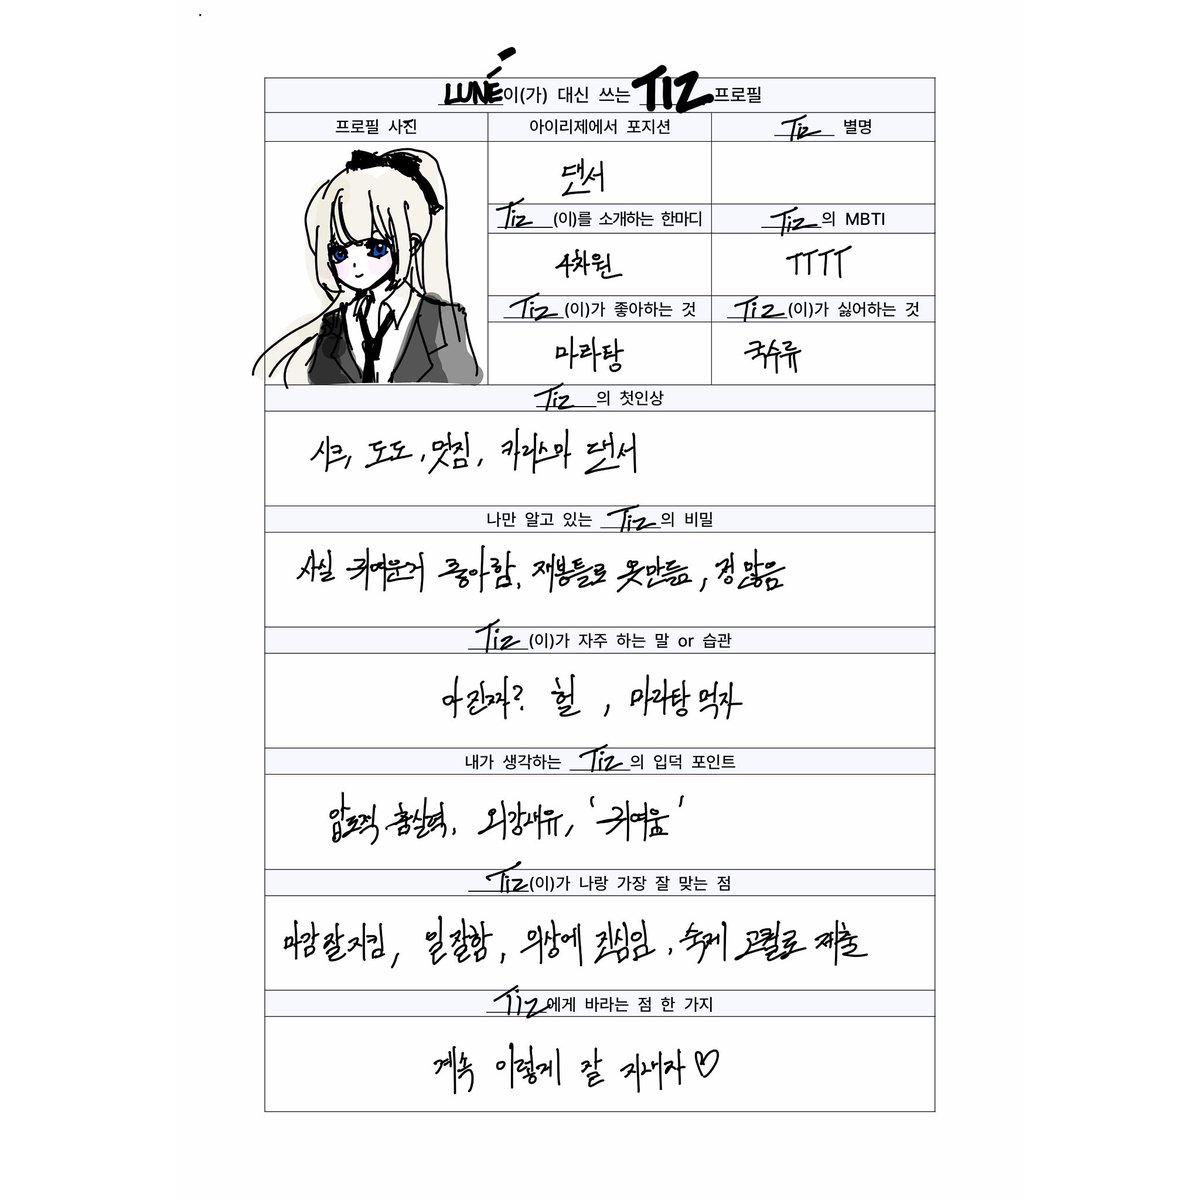 LUNÉ이(가) 대신 쓰는 TIZ 프로필
프로필 사진
아이리제에서 포지션
Tiz 별명
댄서
Tiz (이)를 소개하는 한마디
Tiz의 MBTI
4차원
TTTT
Tiz (이)가 좋아하는 것
Tiz (이)가 싫어하는 것
마라탕
국수류
Tiz의 첫인상
시크, 도도, 멋짐, 카리스마 댄서
나만 알고 있는 Tiz의 비밀
사실 귀여운거 좋아함, 재봉틀로 옷만듦, 정많음
Tiz (이)가 자주 하는 말 or 습관
아 진짜? 헐, 마라탕 먹자
내가 생각하는 Tiz의 입덕 포인트
압도적 춤실력, 외강내유, '귀여움'
Tiz(이)가 나랑 가장 잘 맞는 점
마감 잘지킴, 일잘함, 의상에 진심임, 숙제 고퀄로 제출
Tiz에게 바라는 점 한 가지
계속 이렇게 잘 지내자♡